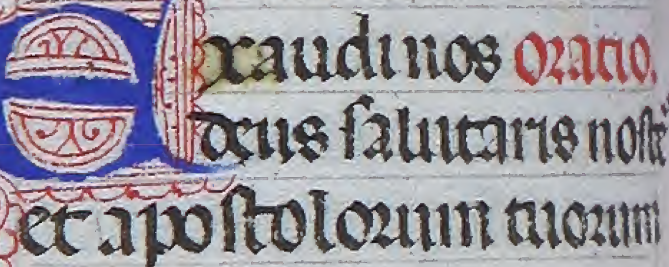 Exaudi nos oratio.
deus salutaris noste
et apostolorum tuorum